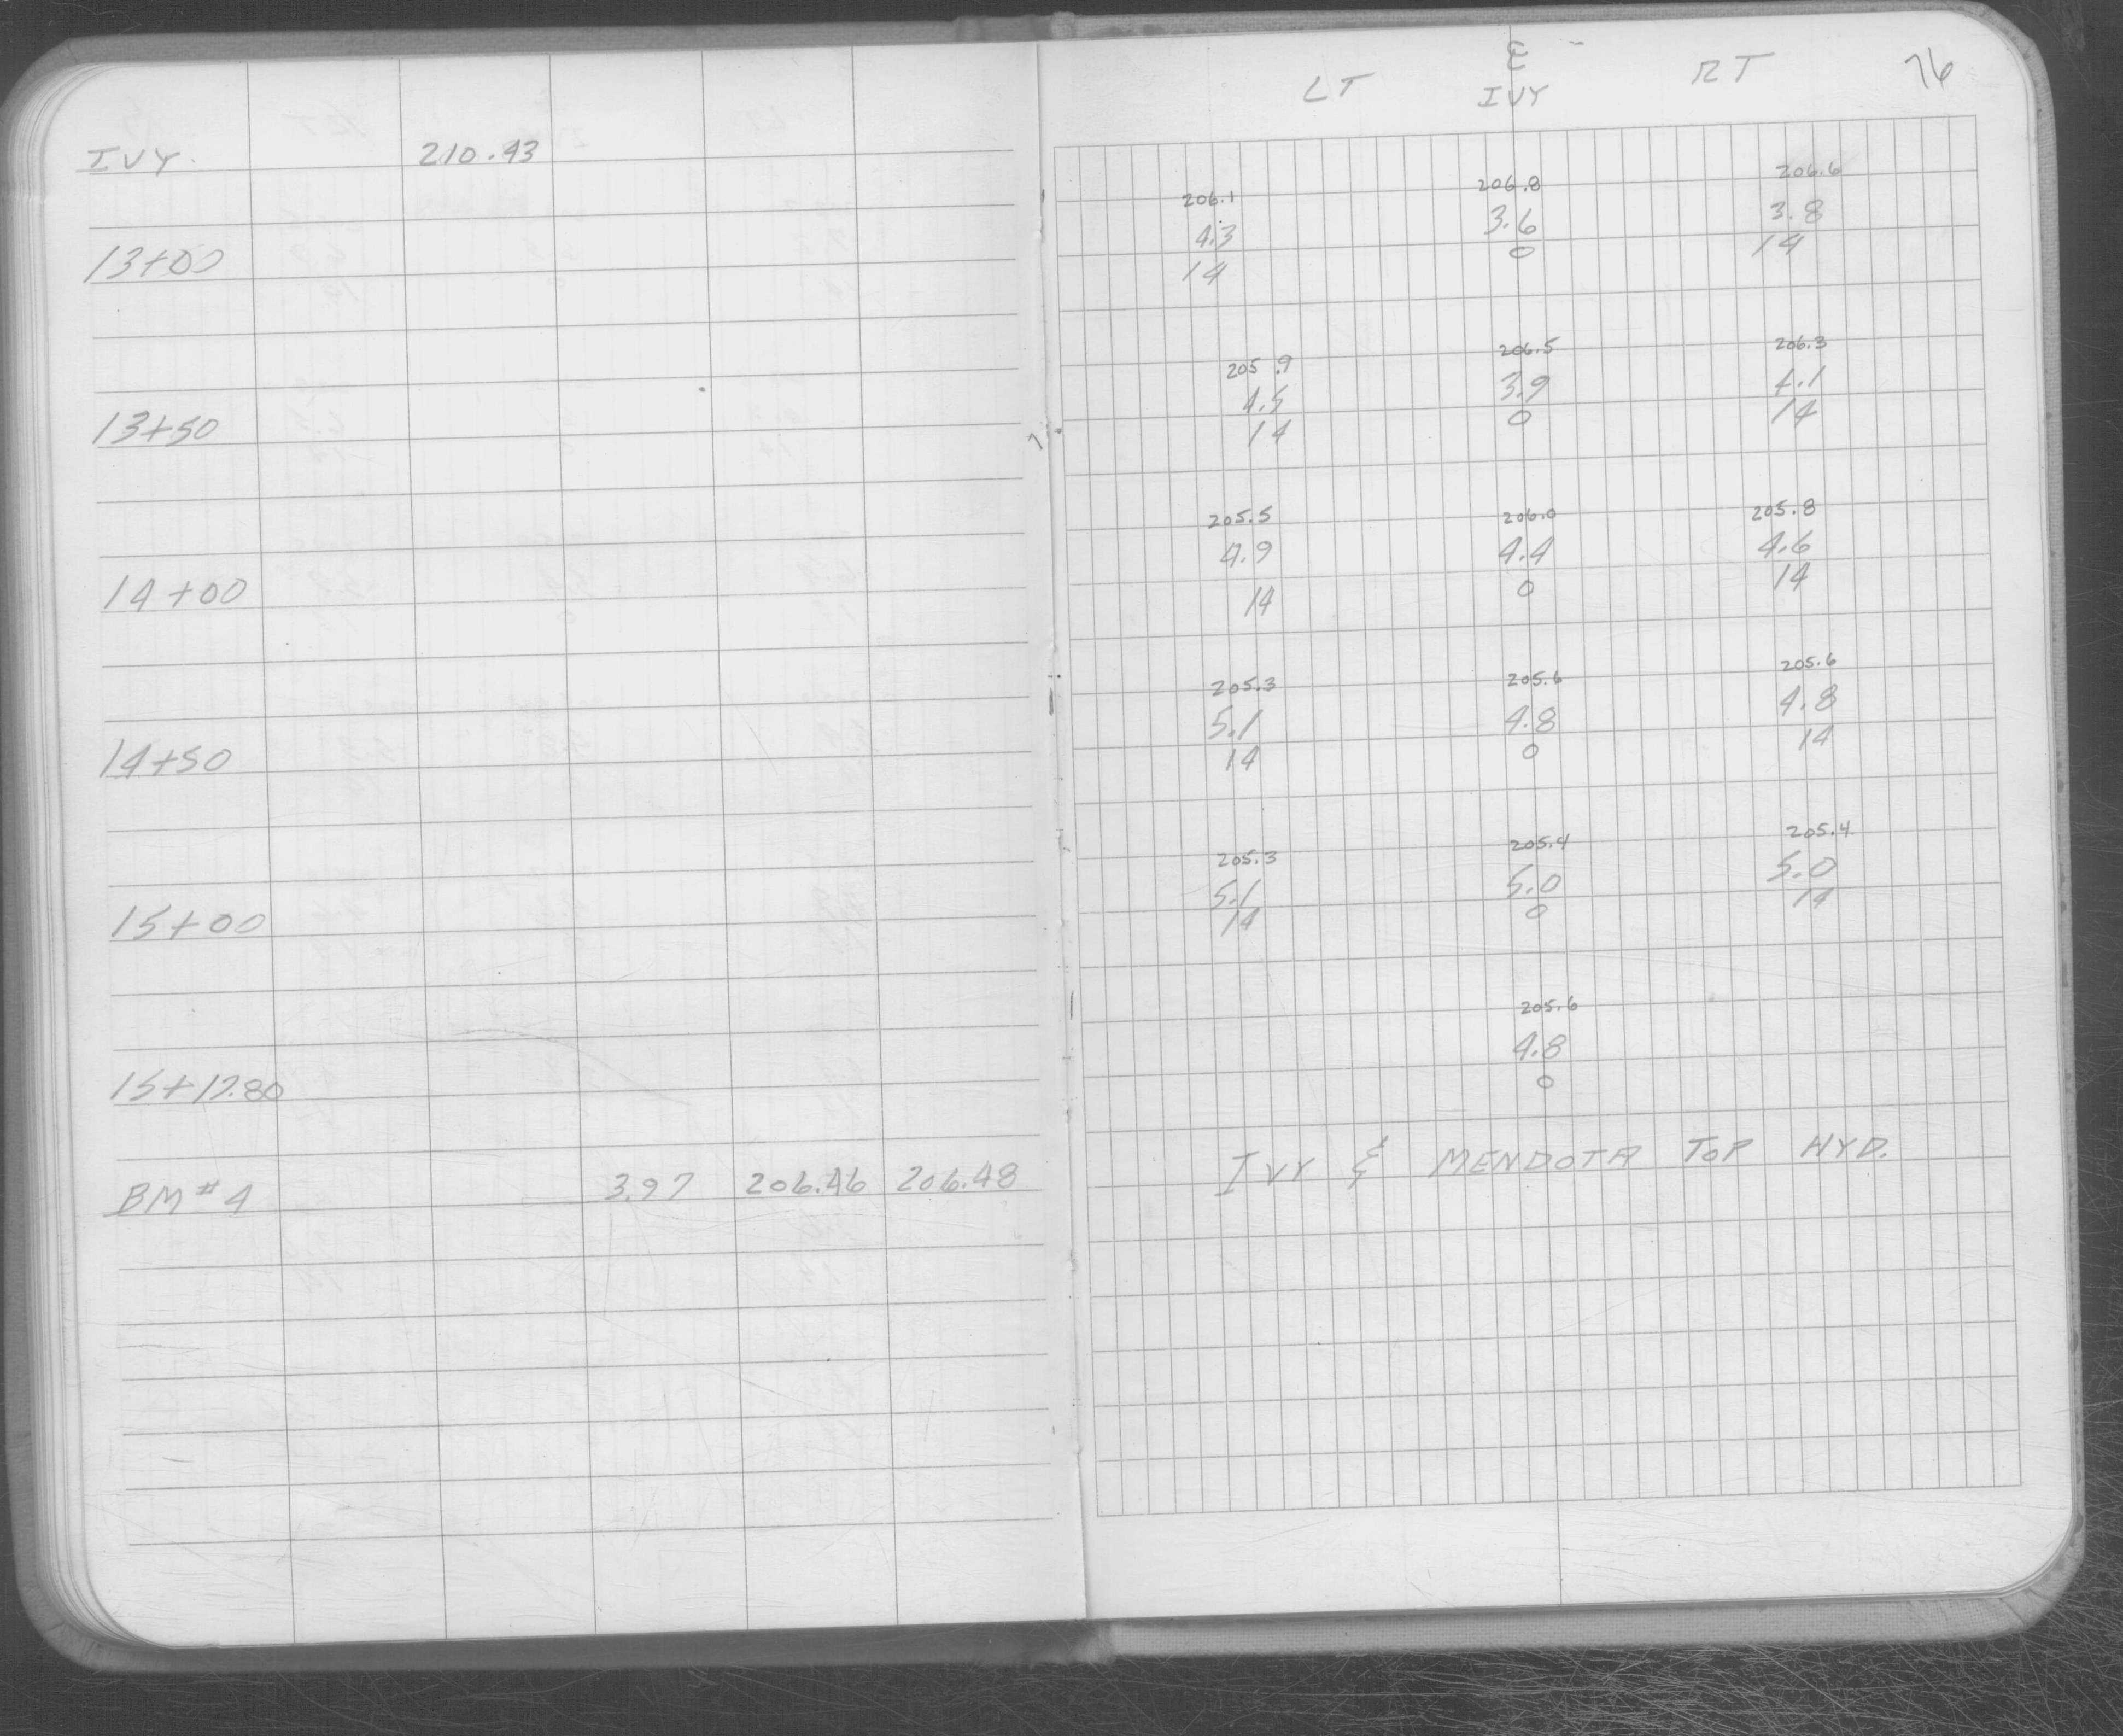 IVY 210.43
13+00
13+50
14+00
14+50
15+00
15+17.80
BM #4 3.97 206.46 206.48
76
LT ℄ RT
IVY
206.1 206.8 206.6
4.3 3.6 3.8
14 0 14
205.9 206.5 206.3
4.5 3.9 4.1
14 0 14
205.5 206.0 205.8
4.9 4.4 4.6
14 0 14
205.3 205.6 205.6
5.1 4.8 4.8
14 0 14
205.3 205.4 205.4
5.1 5.0 5.0
14 0 14
205.6
4.8
0
IVY & MENDOTA TOP HYD.